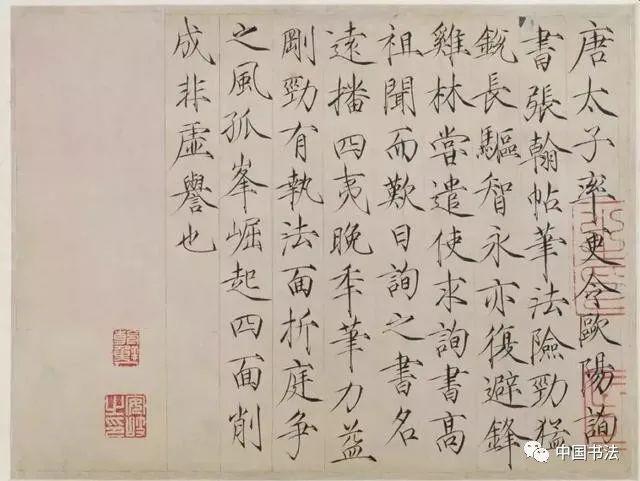 唐太子率更令歐陽詢
書張翰帖筆法險勁猛
銳長驅智永亦復避鋒
雞林嘗遣使求詢書高
祖聞而歎曰詢之書名
遠播四夷晚年筆力益
剛勁有執法面折庭爭
之風孤峯崛起四面削
成非虛譽也
中国书法